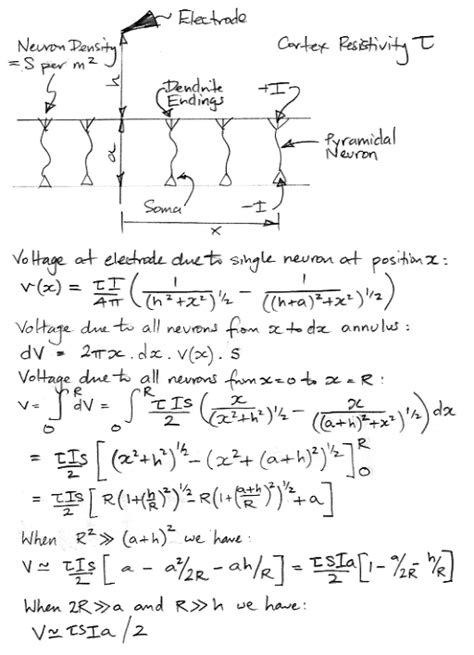 Electrode
Neuron Density
= S per m²
Cortex Resistivity τ
h
Dendrite
Endings
+I
a
Pyramidal
Neuron
Soma
-I
x
Voltage at electrode due to single neuron at position x:
v(x) = τI/4π (1/(h²+x²)^½ - 1/((h+a)²+x²)^½)
Voltage due to all neurons from x to dx annulus:
dV = 2πx.dx.v(x).s
Voltage due to all neurons from x=0 to x=R:
V= ∫₀ᴿ dV = ∫₀ᴿ τIs/2 (x/(x²+h²)^½ - x/((a+h)²+x²)^½) dx
= τIs/2 [(x²+h²)^½ - (x²+(a+h)²)^½]₀ᴿ
= τIs/2 [R(1+(h/R)²)^½ - R(1+(a+h/R)²)^½ + a]
When R² ≫ (a+h)² we have:
V ≃ τIs/2 [a - a²/2R - ah/R] = τSIa/2 [1 - a/2R - h/R]
When 2R≫a and R≫h we have:
V≃ τSIa/2